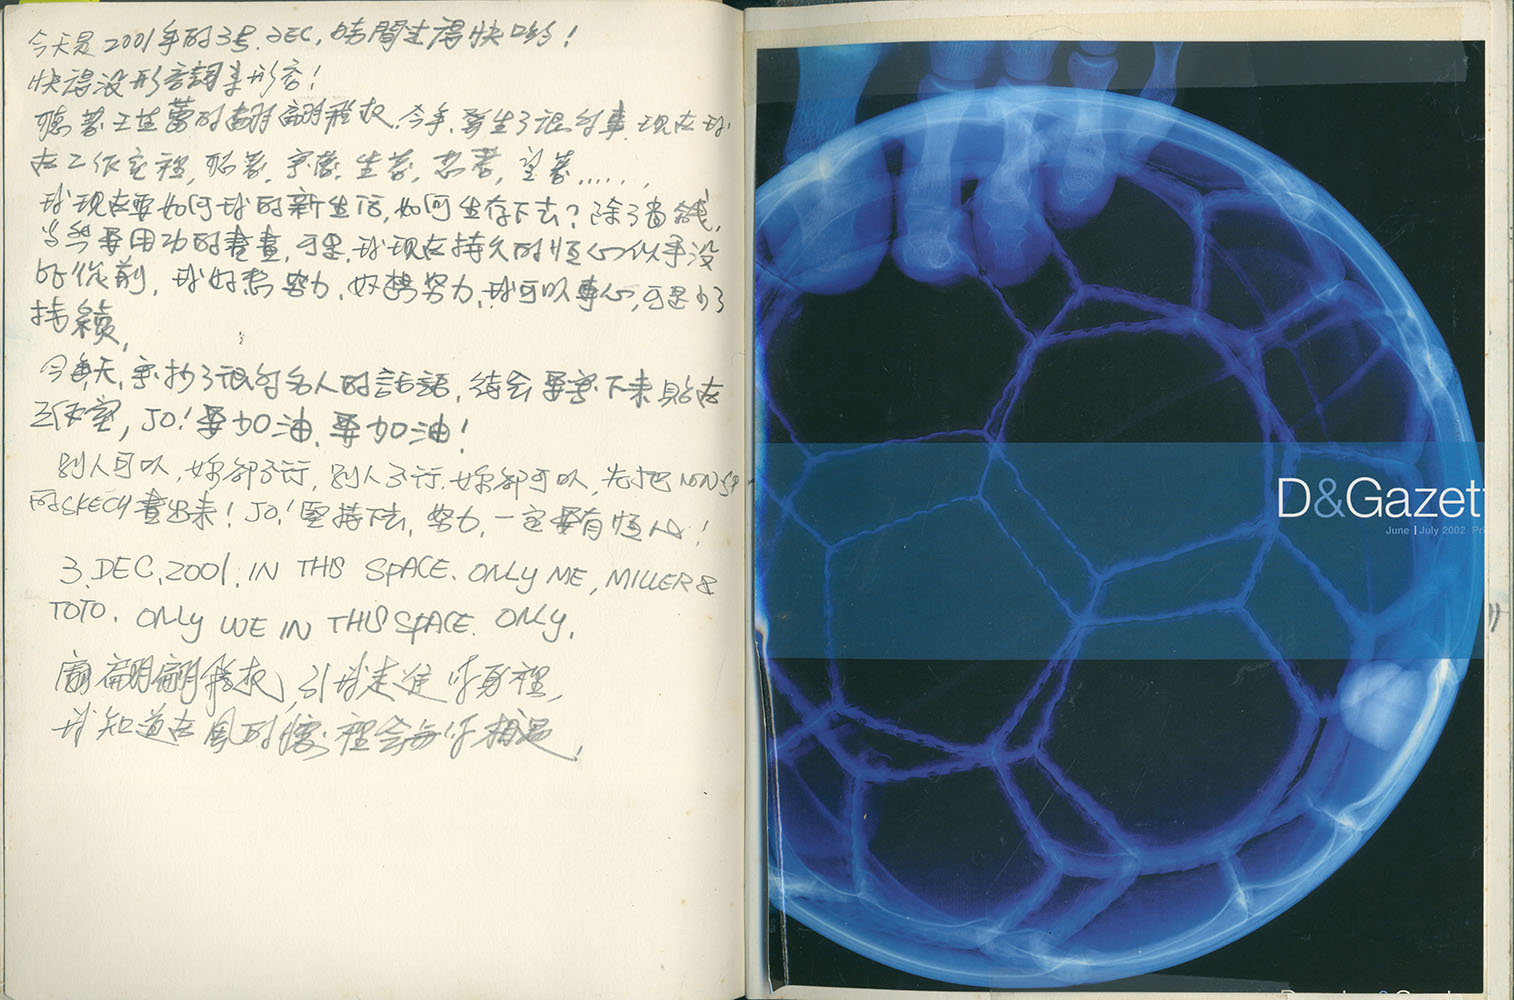 今天是2001年的3号.DEC,時間過得快喲!
快得沒形容詞來形容!
聽著王芷蕾的翩翩飛板.今年.發生了很多事.現在我
在工作室裡,聽著,寫著,生著,想著,望著......
我現在要如何我的新生活,如何生存下去?除了賣錢,
當然要用功的畫畫,可是.我現在持久的恒心似乎沒
的從前,我好想努力,好想努力,我可以專心,可是少了
持續,
今每天,寫抄了很多名人的話語,待會要寫下來貼在
工作室,JO!要加油.要加油!
別人可以,妳卻不行,別人不行.妳卻可以,先把NON
的SKECH畫出來!JO!堅持下去,努力,一定要有恒心!
3.DEC.2001.IN THIS SPACE.ONLY ME,MILLER &
TOTO. ONLY WE IN THIS SPACE. ONLY.
翩翩飛板,引我走進你夢裡,
我知道在風的懷裡會與你相遇,
D&Gazett
June | July 2002